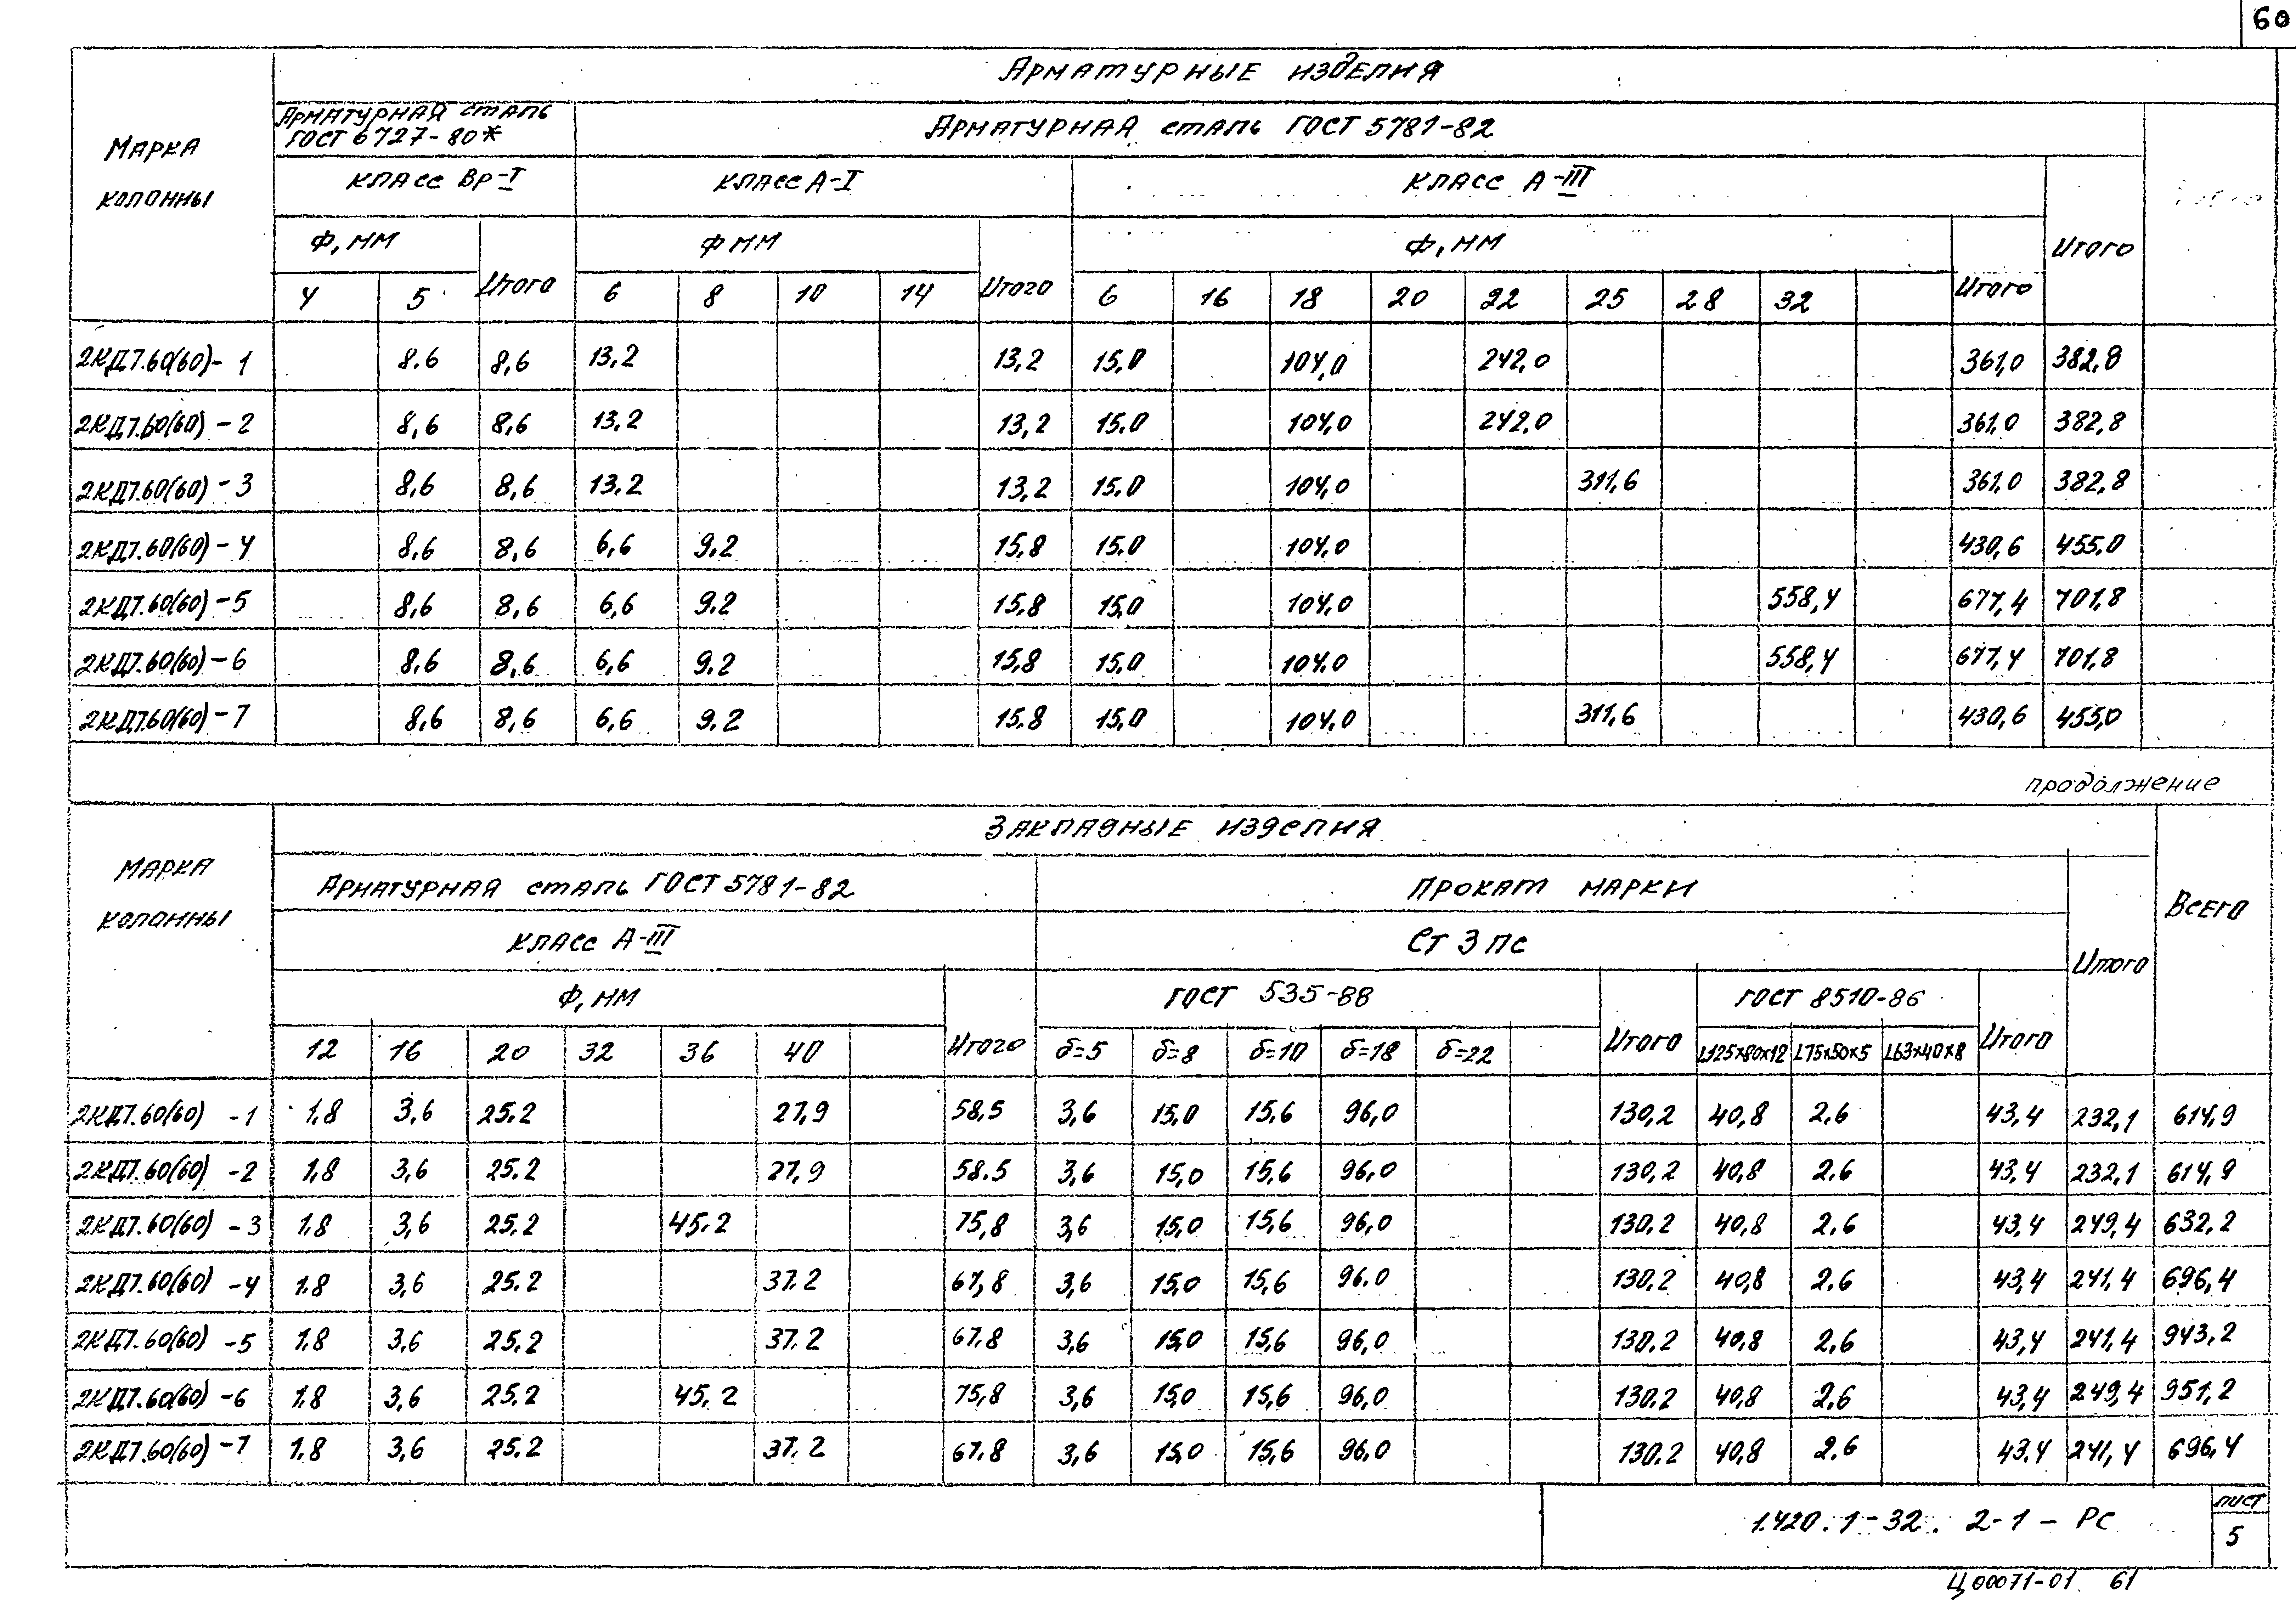 60
Арматурные изделия
Марка колонны
Арматурная сталь ГОСТ 6727-80*
Арматурная сталь ГОСТ 5781-82
класс Вр-I
класс А-I
класс А-III
Ф, мм
Итого
Ф мм
Итого
Ф, мм
Итого
Итого
4 5 6 8 10 14 6 16 18 20 22 25 28 32
2КД7.60(60)-1 8.6 8,6 13.2 13,2 15.0 104,0 242,0 361,0 382,8
2КД7.60(60)-2 8,6 8,6 13.2 13,2 15.0 104,0 242,0 361,0 382,8
2КД7.60(60)-3 8,6 8,6 13.2 13,2 15.0 104,0 311,6 361,0 382,8
2КД7.60(60)-4 8,6 8,6 6,6 9.2 15,8 15.0 104,0 430,6 455,0
2КД7.60(60)-5 8,6 8,6 6,6 9.2 15,8 15,0 104,0 558,4 677,4 701,8
2КД7.60(60)-6 8,6 8,6 6,6 9.2 15,8 15,0 104,0 558,4 677,4 701,8
2КД7.60(60)-7 8,6 8,6 6,6 9.2 15.8 15,0 104,0 311,6 430,6 455,0
продолжение
Закладные изделия
Марка колонны
Арматурная сталь ГОСТ 5781-82
Прокат марки
Всего
класс А-III
Ст 3 пс
Итого
Ф, мм
ГОСТ 535-88
ГОСТ 8510-86
12 16 20 32 36 40 Итого б=5 б=8 б=10 б=18 б=22 Итого L125х80х12 L75х50х5 L63х40х8 Итого
2КД7.60(60) -1 1,8 3,6 25.2 27,9 58.5 3,6 15,0 15.6 96,0 130,2 40,8 2.6 43,4 232,1 614,9
2КД7.60(60) -2 1,8 3,6 25.2 27,9 58.5 3,6 15,0 15,6 96,0 130,2 40,8 2.6 43,4 232,1 614,9
2КД7.60(60) -3 1,8 3,6 25.2 45.2 75,8 3,6 15,0 15,6 96,0 130.2 40,8 2,6 43,4 249,4 632,2
2КД7.60(60) -4 1.8 3,6 25.2 37.2 67,8 3,6 15,0 15,6 96.0 130.2 40,8 2.6 43,4 241,4 696,4
2КД7.60(60) -5 1,8 3,6 25.2 37.2 67.8 3,6 15,0 15,6 96,0 130.2 40,8 2,6 43,4 241,4 943,2
2КД7.60(60) -6 1.8 3,6 25.2 45,2 75,8 3,6 15,0 15,6 96,0 130.2 40,8 2,6 43,4 249,4 951,2
2КД7.60(60) -7 1,8 3,6 25.2 37.2 67.8 3,6 15,0 15,6 96.0 130.2 40,8 2.6 43.4 241,4 696,4
1.420.1-32. 2-1-РС
лист
5
Ц00071-01 61